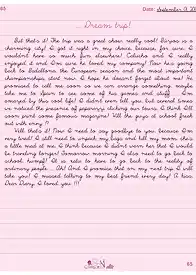 65 Date: September
Dream trip!
But that's it! The trip was a great show really cool! is a
charming city! I got it right on my choice, because, for sure, I
wouldn't have so much fun elsewhere! and I really
enjoyed it and I'm sure he loved my company! Now he's going
back to the European season and the most important
championships start now. I hope he doesn't forget about me! He
promised to call me soon so we can arrange something maybe
take me to Spain to see some of his games and stuff. I'm
amazed by this cool life! I didn't even tell you, but several times
we noticed the presence of paparazzi taking our traces. I think I'll
soon print some famous magazine! Will the guys at school freak
out with envy?
Well, that's it! Now I need to say goodbye to you, because I'm
very tired. I still need to unpack my bags and kill my mom, she's
a little mad at me, I think because I didn't warn her that I would
be traveling longer! Tomorrow morning I also need to go back to
school, humpf! It is rate to have to go back to the reality of
ordinary people... Ah! And I promise that on my next trip I will
take you! I missed talking to my best friend every day! A kiss,
Dear Diary, I loved you!!!
65